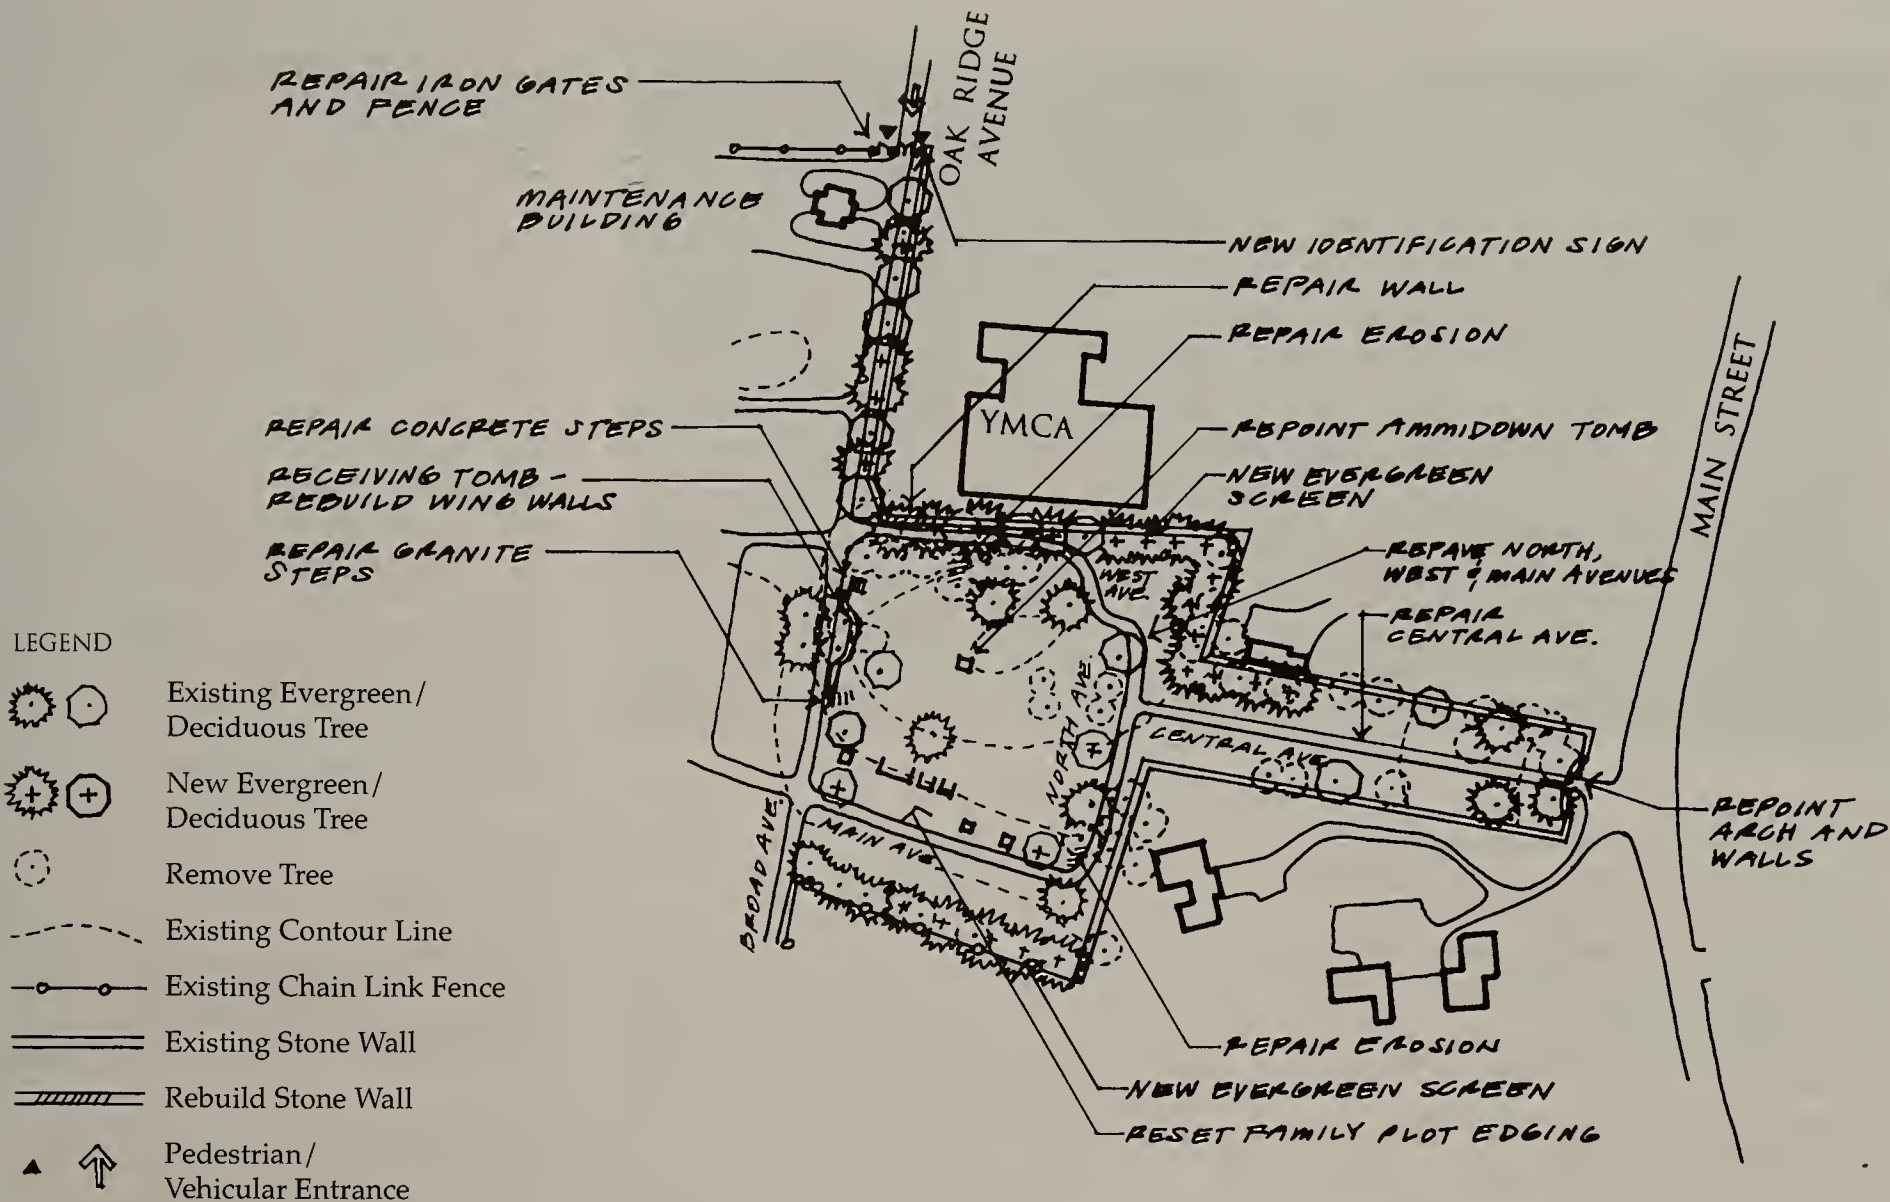 REPAIR IRON GATES
AND FENCE
OAK RIDGE
AVENUE
MAINTENANCE
BUILDING
NEW IDENTIFICATION SIGN
REPAIR WALL
REPAIR EROSION
YMCA
MAIN STREET
REPAIR CONCRETE STEPS
RECEIVING TOMB -
REBUILD WING WALLS
REPAIR GRANITE
STEPS
REPOINT AMMIDOWN TOMB
NEW EVERGREEN
SCREEN
REPAVE NORTH,
WEST & MAIN AVENUES
WEST
AVE.
REPAIR
CENTRAL AVE.
NORTH AVE.
CENTRAL AVE
MAIN AVE
BROAD AVE.
REPOINT
ARCH AND
WALLS
REPAIR EROSION
NEW EVERGREEN SCREEN
RESET FAMILY PLOT EDGING
LEGEND
Existing Evergreen/
Deciduous Tree
New Evergreen/
Deciduous Tree
Remove Tree
Existing Contour Line
Existing Chain Link Fence
Existing Stone Wall
Rebuild Stone Wall
Pedestrian/
Vehicular Entrance